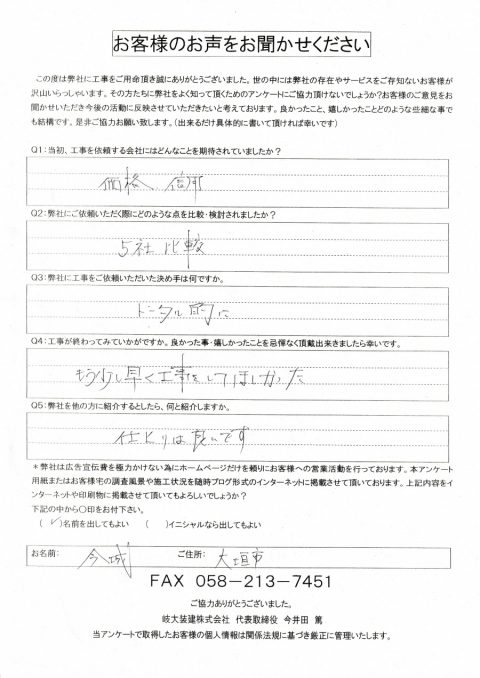 お客様のお声をお聞かせください
この度は弊社に工事をご用命頂き誠にありがとうございました。世の中には弊社の存在やサービスをご存知ないお客様が
沢山いらっしゃいます。その方たちに弊社をよく知って頂くためのアンケートにご協力頂けないでしょうか?お客様のご意見をお
聞かせいただき今後の活動に反映させていただきたいと考えております。良かったこと、嬉しかったことどのような些細な事で
も結構です。是非ご協力お願い致します。(出来るだけ具体的に書いて頂ければ幸いです)
Q1:当初、工事を依頼する会社にはどんなことを期待されていましたか?
価格 信用
Q2:弊社にご依頼いただく際にどのような点を比較・検討されましたか?
5社比較
Q3:弊社に工事をご依頼いただいた決め手は何ですか。
トータル的に
Q4:工事が終わってみていかがですか。良かった事・嬉しかったことを忌憚なく頂戴出来ましたら幸いです。
もう少し早く工事をしてほしかった
Q5:弊社を他の方に紹介するとしたら、何と紹介しますか。
仕上りは良いです
*弊社は広告宣伝費を極力かけない為にホームページだけを頼りにお客様への営業活動を行っております。本アンケート
用紙またはお客様宅の調査風景や施工状況を随時ブログ形式のインターネットに掲載させて頂いております。上記内容をイ
ンターネットや印刷物に掲載させて頂いてもよろしいでしょうか?
下記の中から○印をお付下さい。
(✓)名前を出してもよい ( )イニシャルなら出してもよい
お名前: 今城 ご住所: 大垣市
FAX 058-213-7451
ご協力ありがとうございました。
岐大装建株式会社 代表取締役 今井田 篤
当アンケートで取得したお客様の個人情報は関係法規に基づき厳正に管理いたします。